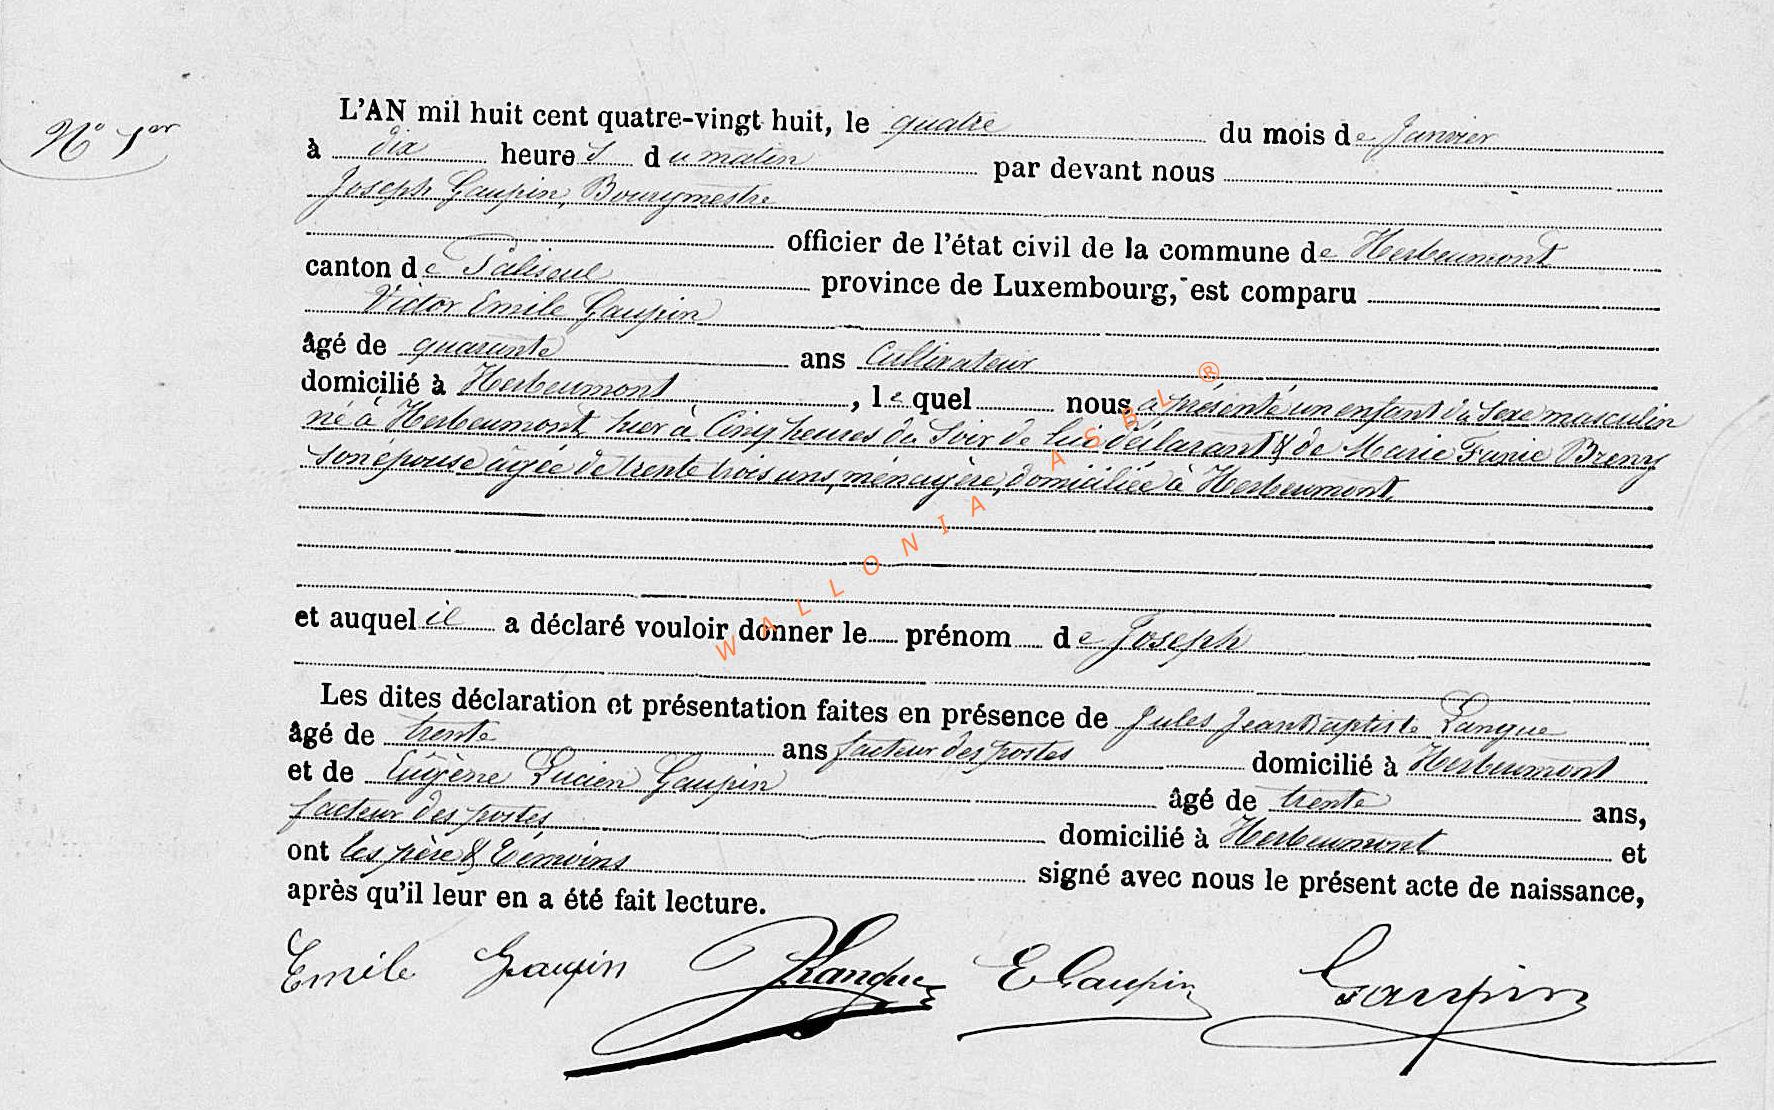 N° 1er
L'AN mil huit cent quatre-vingt huit, le quatre du mois de Janvier
à dix heures du matin par devant nous
Joseph Gaupin, Bourgmestre
officier de l'état civil de la commune de Herbeumont
canton de Paliseul province de Luxembourg, est comparu
Victor Emile Gaupin
âgé de quarante ans Cultivateur
domicilié à Herbeumont, lequel nous a présenté un enfant du Sexe masculin
né à Herbeumont hier à Cinq heures du Soir de lui déclarant & de Marie Fanie Breny
son épouse âgée de trente trois ans, ménagère, domiciliée à Herbeumont.
et auquel il a déclaré vouloir donner le prénom de Joseph
Les dites déclaration et présentation faites en présence de Jules Jean Baptiste Langue
âgé de trente ans facteur des postes domicilié à Herbeumont
et de Eugène Lucien Gaupin âgé de trente ans,
facteur des postes domicilié à Herbeumont et
ont les père & témoins signé avec nous le présent acte de naissance,
après qu'il leur en a été fait lecture.
Emile Gaupin JLangue E Gaupin Gaupin
WALLONIA ASBL ®